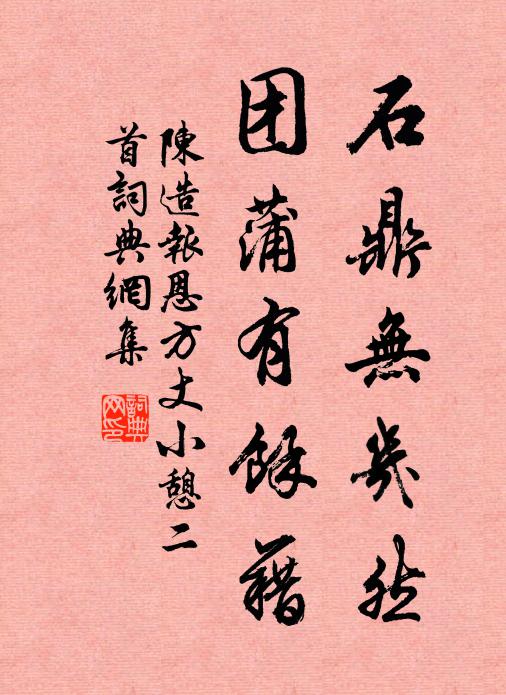 石鼎無幾然
团蒲有餘藉
陳造報恩方丈小憩二
首詞典網集
詞典
网印